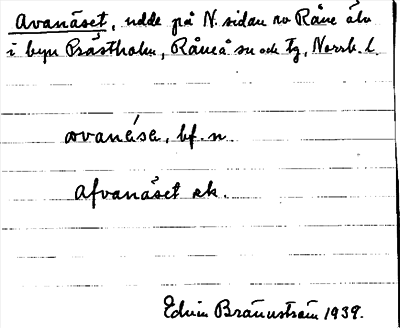 Avanäset, udde på N. sidan av Råne älv
i byn Prästholm, Råneå sn och tg, Norrb. l.
avanäse, bf. n.
Afvanäset ek.
Edvin Brännström 1939.